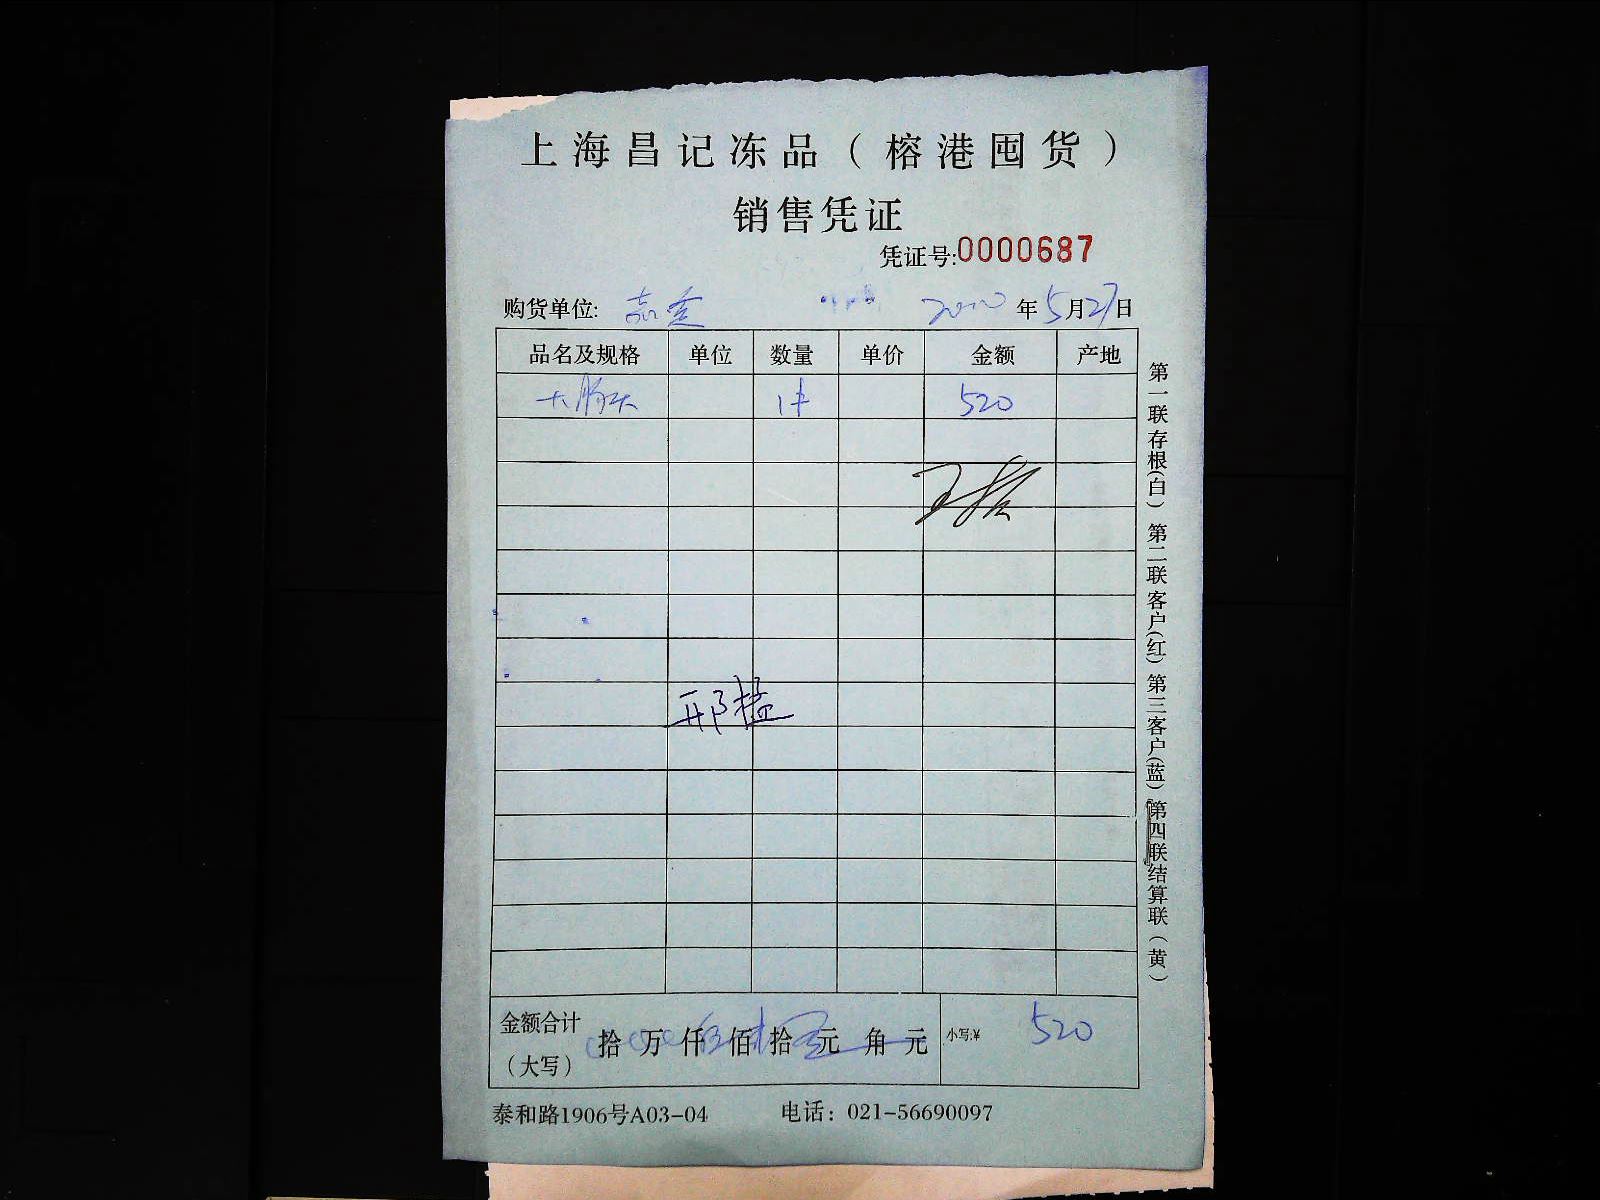 上海昌记冻品（榕港囤货）
销售凭证
凭证号:0000687
购货单位: 年5月27日
品名及规格 单位 数量 单价 金额 产地
大肠头 1件 520
邢楹
金额合计（大写） 拾 万 仟 伍佰 拾 元 角 元 小写:¥ 520
泰和路1906号A03-04 电话：021-56690097
第一联存根(白) 第二联客户(红) 第三客户(蓝) 第四联结算联(黄)